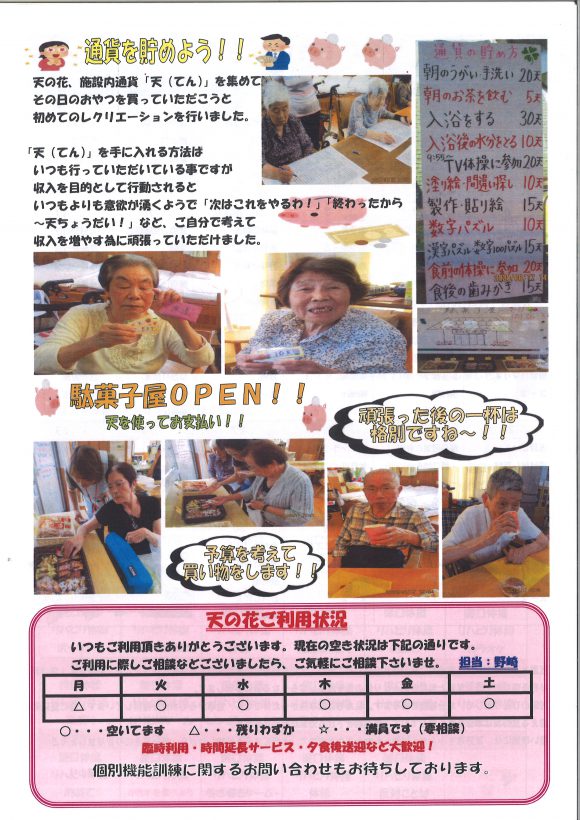 通貨を貯めよう！！
天の花、施設内通貨「天（てん）」を集めて
その日のおやつを買っていただこうと
初めてのレクリエーションを行いました。
「天（てん）」を手に入れる方法は
いつも行っていただいている事ですが
収入を目的として行動されると
いつもよりも意欲が湧くようで「次はこれをやるわ！」「終わったから
～天ちょうだい！」など、ご自分で考えて
収入を増やす為に頑張っていただけました。
通貨の貯め方
朝のうがい・手洗い 20天
朝のお茶を飲む 5天
入浴をする 30天
入浴後の水分をとる 10天
9:55 TV体操に参加 20天
塗り絵・間違い探し 10天
製作・貼り絵 15天
数字パズル 10天
漢字パズル 数字100パズル 15天
食前の体操に参加 20天
食後の歯みがき 15天
駄菓子屋ＯＰＥＮ！！
天を使ってお支払い！！
頑張った後の一杯は
格別ですね～！！
予算を考えて
買い物をします！！
天の花ご利用状況
いつもご利用頂きありがとうございます。現在の空き状況は下記の通りです。
ご利用に際しご相談などございましたら、お気軽にご相談下さいませ。 担当：野崎
月 火 水 木 金 土
△ ○ ○ ○ ○ ○
○・・・空いてます △・・・残りわずか ☆・・・満員です（要相談）
臨時利用・時間延長サービス・夕食後送迎など大歓迎！
個別機能訓練に関するお問い合わせもお待ちしております。